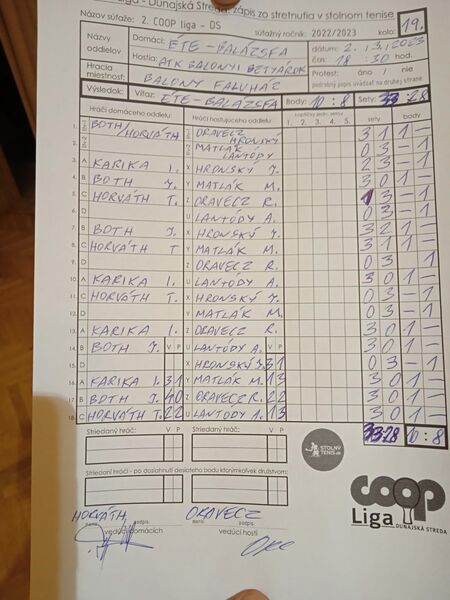 Liga - Dunajská Streda: zápis zo stretnutia v stolnom tenise
Názov súťaže: 2. COOP liga - DS súťažný ročník: 2022/2023 kolo: 19.
Názov oddielov Domáci: ÉTE - BALÁZSFA dátum: 2. 3. 2023
Hostia: ATK BALONYI BETYÁROK čas: 18:30 hod.
Hracia miestnosť: BALONY FALUHÁZ Protest: áno / nie
podrobný popis uvádzať na druhej strane
Výsledok: Víťaz: ÉTE - BALÁZSFA Body: 10 : 8 Sety: 33 : 28
Hráči domáceho oddielu: Hráči hosťujúceho oddielu: 1. 2. 3. 4. 5. sety body
1. BOTH/HORVÁTH ORAVECZ HRONSKÝ 3 1 1 -
2. MATLÁK LANTÓDY 0 3 - 1
3. A KARIKA I. X HRONSKÝ J. 2 3 - 1
4. B BOTH J. Y MATLÁK M. 3 0 1 -
5. C HORVÁTH T. Z ORAVECZ R. 1 3 - 1
6. D U LANTÓDY A. 0 3 - 1
7. B BOTH J. X HRONSKÝ J. 3 2 1 -
8. C HORVÁTH T Y MATLÁK M. 3 1 1 -
9. D Z ORAVECZ R. 0 3 1
10. A KARIKA I. U LANTÓDY A. 3 0 1 -
11. C HORVÁTH T. X HRONSKÝ J. 0 3 - 1
12. D Y MATLÁK M. 0 3 - 1
13. A KARIKA I. Z ORAVECZ R. 3 0 1 -
14. B BOTH J. V P U LANTÓDY A. V P 3 0 1 -
15. D X HRONSKÝ J. 3 1 0 3 - 1
16. A KARIKA I. 3 1 Y MATLÁK M. 1 3 3 0 1 -
17. B BOTH J. 4 0 Z ORAVECZ R. 2 2 3 0 1 -
18. C HORVÁTH T. 2 2 U LANTÓDY A. 1 3 3 0 1 -
Striedaný hráč: V P Striedaný hráč: V P 33:28 10 : 8
STOLNÝ TENIS
Striedaní hráči - po dosiahnutí desiateho bodu ktorýmkoľvek družstvom:
V P V P
coop
Liga DUNAJSKÁ STREDA
HORVÁTH ORAVECZ
meno podpis meno podpis
vedúci domácich vedúci hostí